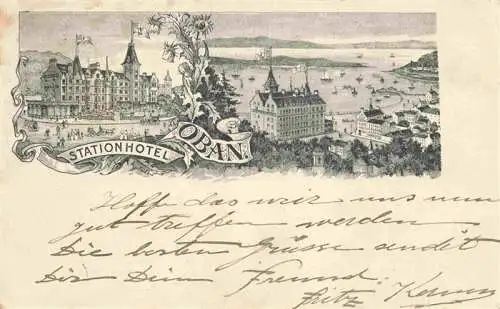 STATIONHOTEL
OBAN
Hoff das wir uns nun
gut treffen werden
Die besten Grüsse sendet
Dir Dein Freund
Fritz